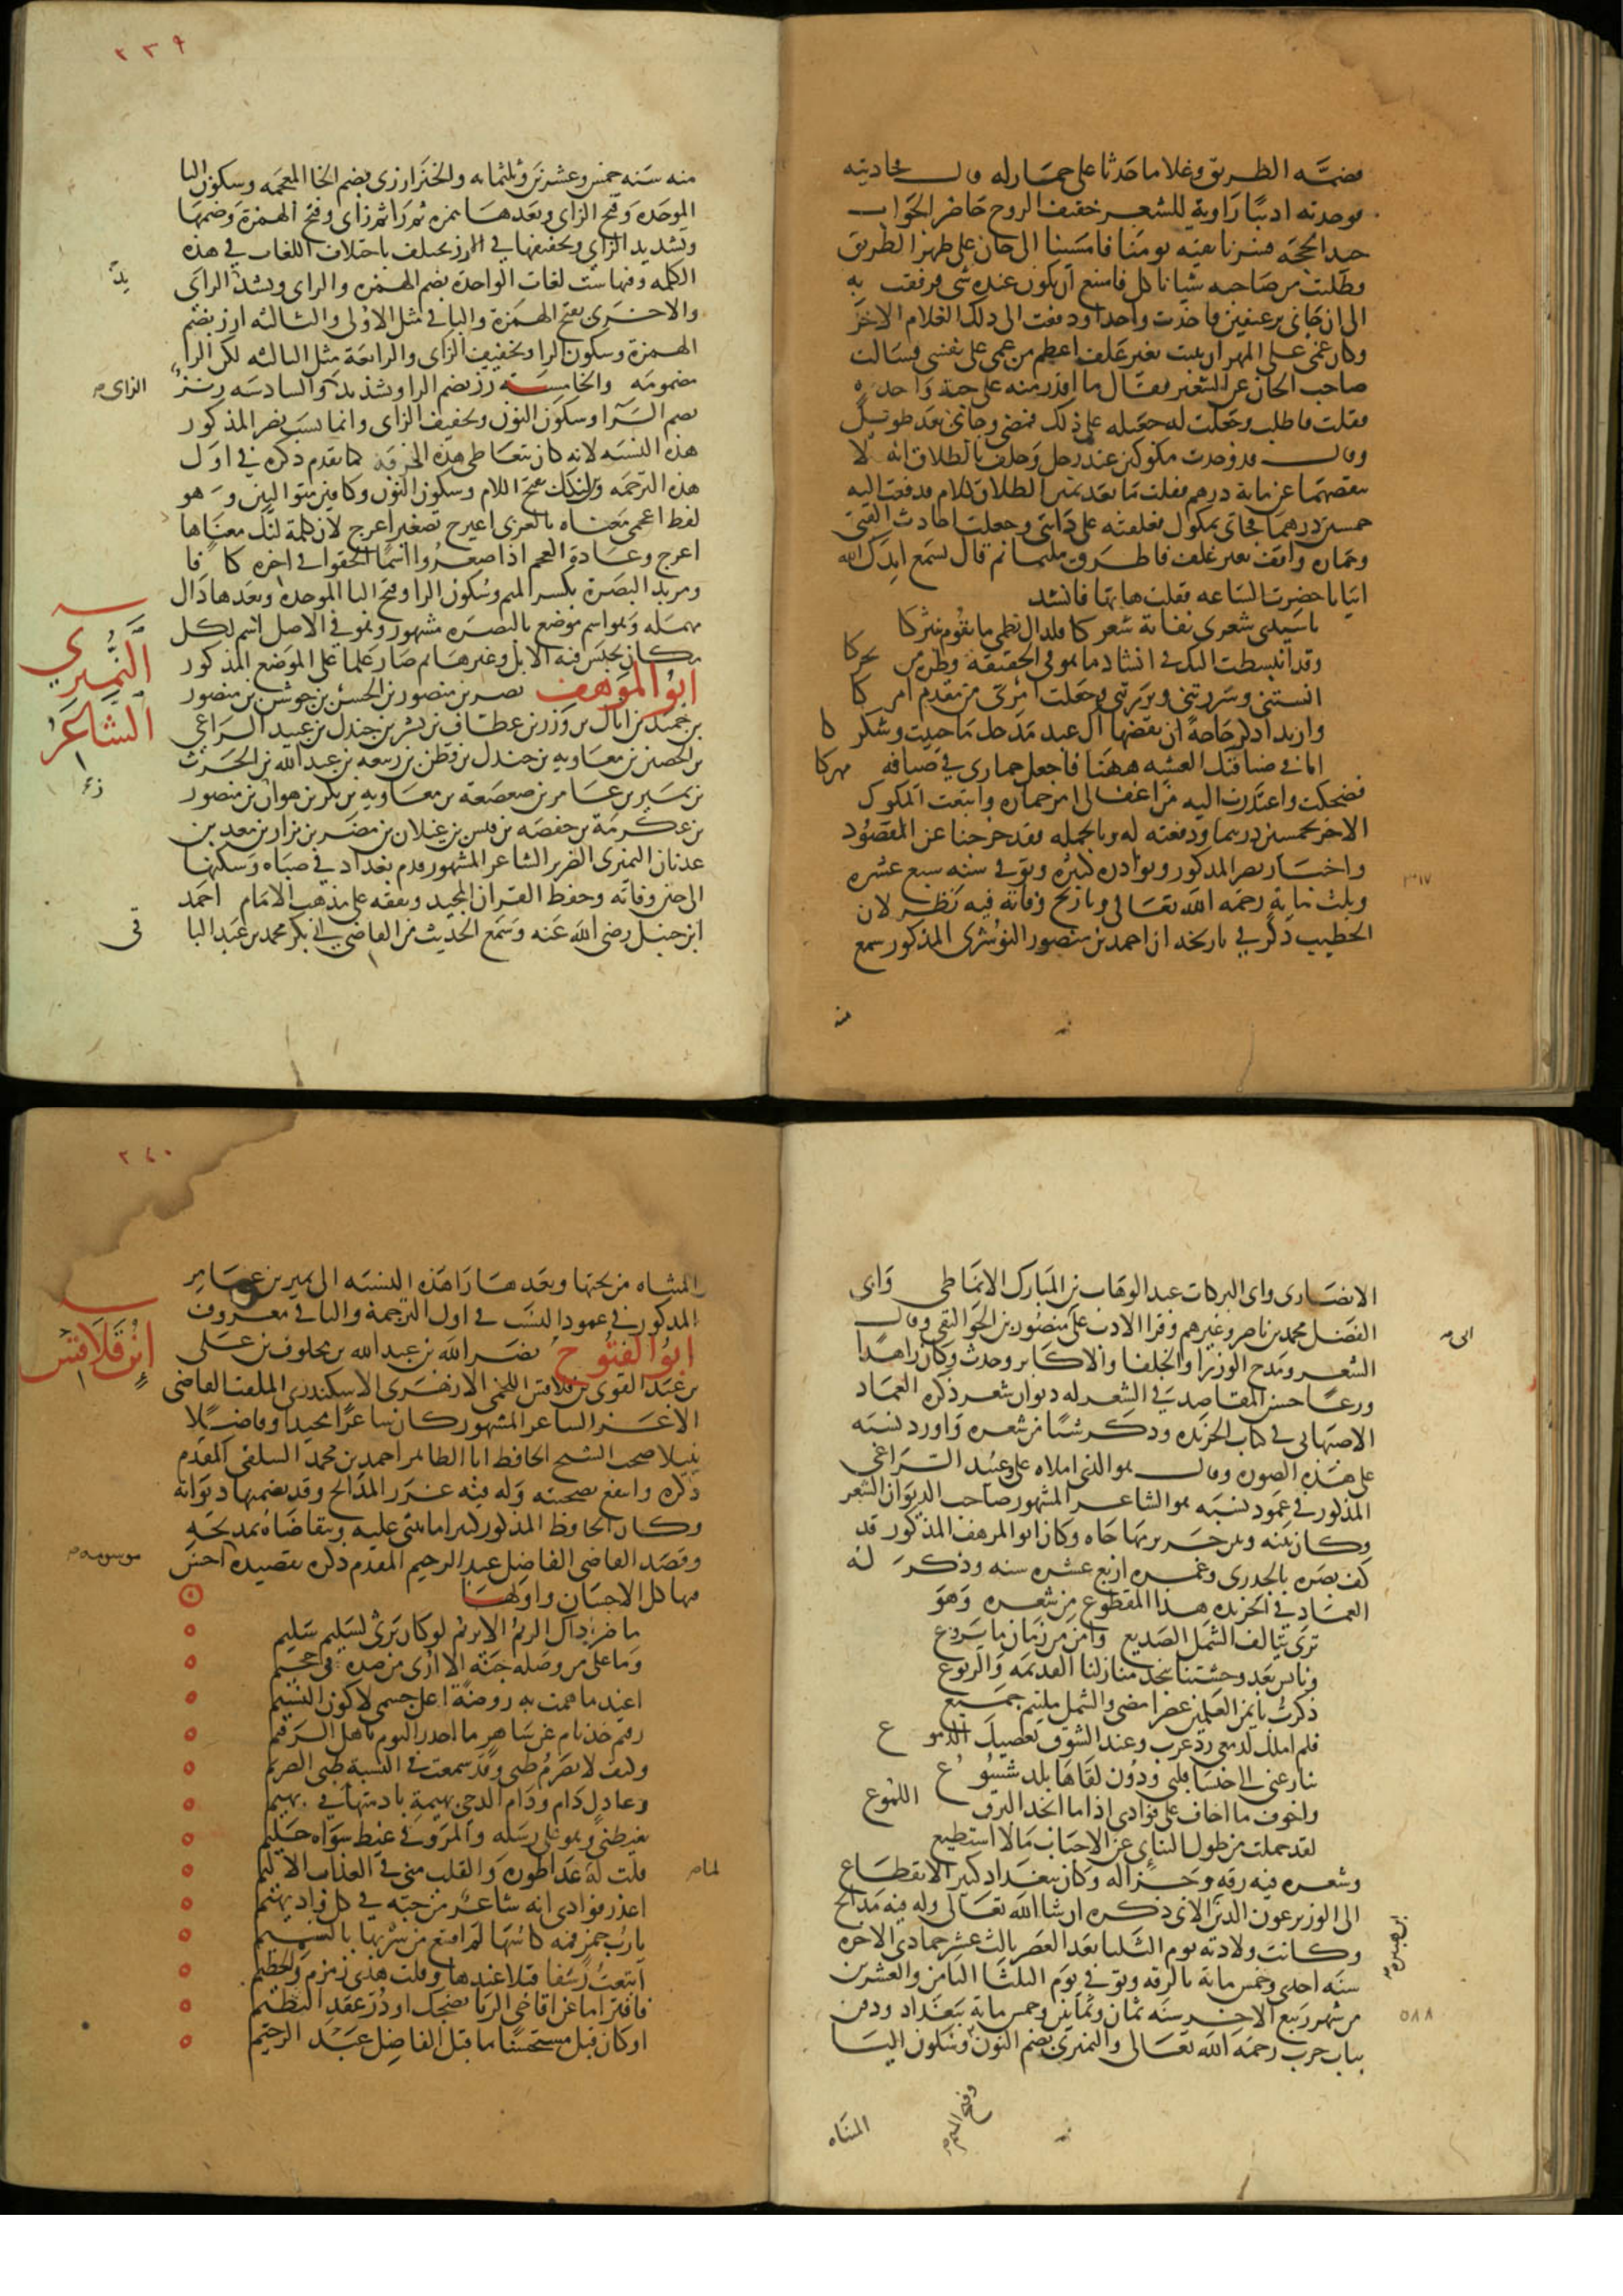 فضمه الطريق وغلاما حدثا على حمار له قال فحادثته
فوجدته اديبا راوية للشعر خفيف الروح حاضر الجواب
جيد الحجة فسرنا بقيه يومنا فامسينا الى خان على ظهر الطريق
وطلبت من صاحبه شيا ناكل فامتنع ان يكون عنده شى فرفقت به
الى ان جانى برغيفين فاخذت واحدا ودفعت الى ذلك الغلام الاخر
وكان غمى على المهر ان يبيت بغير علف اعظم من غمى على نفسى فسالت
صاحب الخان عن الشعير فقال ما اقدر منه على حبة واحده
فقلت فاطلب وجعلت له جعيله على ذلك فمضى وجانى بعد طويل
وقال قد وجدت مكوكين عند رجل وحلف بالطلاق انه لا
ينقصهما عن ماية درهم فقلت ما بعد يمين الطلاق كلام فدفعت اليه
خمسين درهما فجانى بمكوك فعلفته على دابتى وجعلت احادث الفتى
وحماره واقف بغير علف فاطرق مليا ثم قال تسمع ايدك الله
ابياتا حضرت الساعه فقلت هاتها فانشد
ياسيدى شعرى نفاية شعركا فلذاك نظمى ما يقوم بنثركا
وقد انبسطت اليك فى انشاد ما هو فى الحقيقة قطره من بحركا
انستنى وسررتنى وبررتنى وجعلت امرى من مقدم امركا
واريد اذكر حاجة ان تقضها اك عبد مدحك ما حييت وشكركا
انا فى ضيافتك العشيه ههنا فاجعل حمارى فى ضيافة مهركا
فضحكت واعتذرت اليه من اغفالى امر حماره وابتعت المكوك
الاخر بخمسين درهما ودفعته له وبالجمله فقد خرجنا عن المقصود
واخبار نصر المذكور ونوادره كثيره وتوفى سنه سبع عشره
وثلث ماية رحمه الله تعالى وتاريخ وفاته فيه نظر لان
٣١٧
الخطيب ذكر فى تاريخه ان احمد بن منصور النوشرى المذكور سمع
منه
٢٣٩
منه سنه خمس وعشرين وثلثمايه والخبزارزى بضم الخا المعجمه وسكون البا
الموحده وفتح الزاى وبعدها همزه ثم را ثم زاى وفتح الهمزة وضمها
وتشديد الزاى وتخفيفها فى الارز يختلف باختلاف اللغات فى هذه
الكلمه وفيها ست لغات الواحدة بضم الهمزه والراى وتشديد الزاى
والاخرى بفتح الهمزة والباقى مثل الاولى والثالثه ارز بضم
الهمزة وسكون الرا وتخفيف الزاى والرابعة مثل الثالثه لكن الرا
مضمومه والخامسه رز بضم الرا وتشديد الزاى والسادسه رنز
بضم الرا وسكون النون وتخفيف الزاى وانما نسب نصر المذكور
هذه النسبه لانه كان يتعاطى هذه الحرفة كما تقدم ذكره فى اول
هذه الترجمه ولنكك بفتح اللام وسكون النون وكافين متواليين وهو
لفظ اعجمى معناه بالعربى اعيرج تصغير اعرج لان كلمة لنك معناها
اعرج وعادة العجم اذا صغروا اسما الحقوا فى اخره كافا
ومربد البصرة بكسر الميم وسكون الرا وفتح البا الموحده وبعدها دال
مهمله وهو اسم موضع بالبصره مشهور وهو فى الاصل اسم لكل
مكان يحبس فيه الابل وغيرها ثم صار علما على الموضع المذكور
النميري
الشاعر
ابو المرهف نصر بن منصور بن الحسن بن جوشن بن منصور
بن حميد بن اثال بن وزر بن عطاف بن بشر بن جندل بن عبيد الراعى
بن الحصين بن معاويه بن جندل بن قطن بن ربيعه بن عبد الله بن الحرث
بن نمير بن عامر بن صعصعة بن معاويه بن بكر بن هوازن بن منصور
بن عكرمة بن حفصه بن قيس بن عيلان بن مضر بن نزار بن معد بن
عدنان النميرى الضرير الشاعر المشهور قدم بغداد فى صباه وسكنها
الى حين وفاته وحفظ القران المجيد وتفقه على مذهب الامام احمد
ابن حنبل رضى الله عنه وسمع الحديث من القاضى ابى بكر محمد بن عبد الباقى
الانصارى وابى البركات عبد الوهاب بن المبارك الانماطى وابى
الفضل محمد بن ناصر وغيرهم وقرا الادب على ابى منصور بن الجواليقى وقال
الشعر ومدح الوزرا والخلفا والاكابر وحدث وكان زاهدا
ورعا حسن المقاصد فى الشعر له ديوان شعر ذكره العماد
الاصبهانى فى كتاب الخريده وذكر شيا من شعره واورد نسبه
على هذه الصوره وقال هو الذى املاه على وعبيد الراعى
المذكور فى عمود نسبه هو الشاعر المشهور صاحب الديوان الشعر
وكان بينه وبين جرير مهاجاه وكان ابو المرهف المذكور قد
كف بصره بالجدرى وعمره اربع عشره سنه وذكر له
العماد فى الخريده هذا المقطوع من شعره وهو
ترى يتالف الشمل الصديع وامن من زمان ما يروع
وتانس بعد وحشتنا بنجد منازلنا القديمه والربوع
ذكرت بايمن العلمين عصرا مضى والشمل ملتيم جميع
فلم املك لدمعى رد غرب وعند الشوق تعصيك الدموع
ينازعنى الى خنسا قلبى ودون لقاها بلد شسوع
واخوف ما اخاف على فوادى اذا ما انجد البرق اللموع
لقد حملت من طول التنائى عن الاحباب مالا استطيع
وشعره فيه رقه وجزاله وكان ببغداد كثير الانقطاع
الى الوزير عون الدين بن هبيره الاتى ذكره ان شا الله تعالى وله فيه مدايح
وكانت ولادته يوم الثلثا بعد العصر ثالث عشر جمادى الاخره
سنه احدى وخمس ماية بالرقه وتوفى يوم الثلثا الثامن والعشرين
من شهر ربيع الاخر سنه ثمان وثمانين وخمس ماية ببغداد ودفن
٥٨٨
بباب حرب رحمه الله تعالى والنميرى بضم النون وفتح الميم وسكون اليا
المثناه
٢٤٠
المثناه من تحتها وبعدها را هذه النسبه الى نمير بن عامر
المذكور فى عمود النسب فى اول الترجمة والباقى معروف
ابن قلاقس
ابو الفتوح نصر الله بن عبد الله بن مخلوف بن على
بن عبد القوى بن قلاقس اللخمى الازهرى الاسكندرى الملقب القاضى
الاعز الشاعر المشهور كان شاعرا مجيدا وفاضلا
نبيلا صحب الشيخ الحافظ ابا الطاهر احمد بن محمد السلفى المقدم
ذكره وانتفع بصحبته وله فيه غرر المدايح وقد تضمنها ديوانه
وكان الحافظ المذكور كثيرا ما يثنى عليه ويتقاضاه بمديحه
وقصد القاضى الفاضل عبد الرحيم المقدم ذكره بقصيده موسومه احسن
فيها كل الاحسان واولها
ما ضر ذاك الريم الا يريم لو كان يرثى لسليم سليم
وما على من وصله جنة الا ارى من صده فى جحيم
اعيذ ما همت به روضة اعل جسمى لاكون النسيم
رقيم خد نام عن ساهر ما اجدر النوم باهل الرقيم
وكيف لا يصرم ظبى وقد سمعت فى النسبة ظبى الصريم
وعاذل دام ودام الدجى بهيمة نادمتها فى بهيم
يغيظنى وهو على رسله والمرو فى غيظ سواه حليم
قلت له لما عدا طوره والقلب منى فى العذاب الاليم
اعذر فوادى انه شاعر من حبه فى كل واد يهيم
يارب خمر فمه كاسها لم اقتنع من شربها بالشميم
اتبعت رشفا قبلا عندها وقلت هذى زمزم والحطيم
فافتر اما عن اقاحى الربا تضحك او در عقد النظيم
او كان قبل مستحسنا ما قبل الفاضل عبد الرحيم